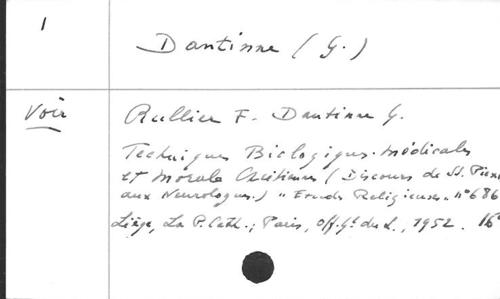 1
Dantinne (G.)
Voir
Rullier F. Dantinne G.
Techniques Biologiques. médicales
et Morale Chrétienne (Discours de SS. Pie XII
aux Neurologues.) "Etudes Religieuses." n° 686
Liège, La P. Cath.; Paris, Off. Gl du L., 1952. 16°